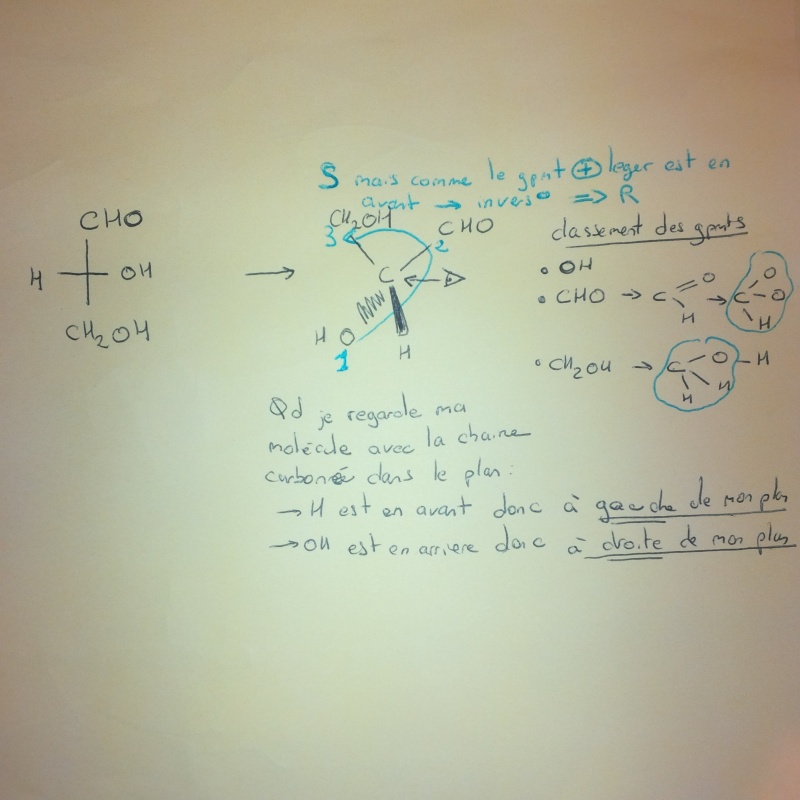 S mais comme le gpnt ⊕ leger est en
avant → inverse => R
CHO
H OH
CH2OH
CH2OH CHO
3 2
C
H O
1 H
classement des gpnts
• OH
• CHO → C O H → C O O H
• CH2OH → C O H H H
Qd je regarde ma
molécule avec la chaine
carbonée dans le plan :
→ H est en avant donc à gauche de mon plan
→ OH est en arriere donc à droite de mon plan